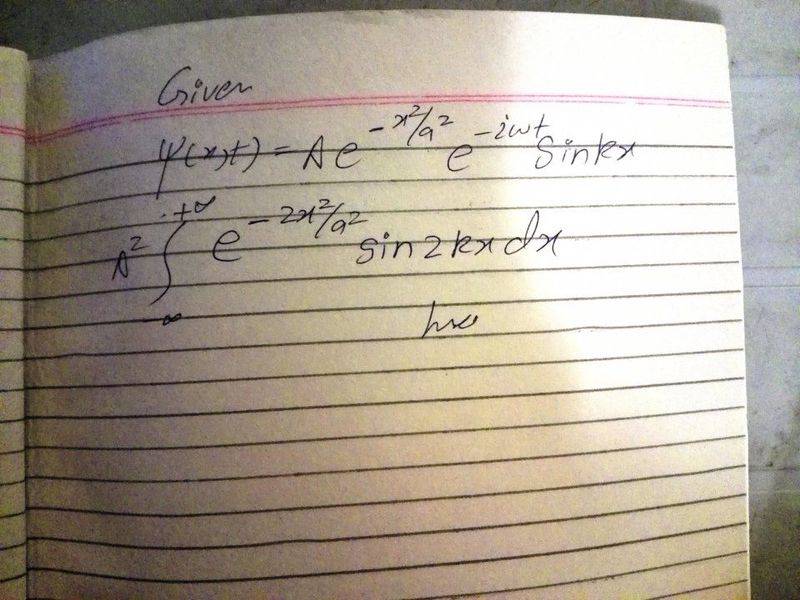 Given
ψ(x,t) = A e^{-x²/a²} e^{-iωt} Sin kx
A² ∫_{-∞}^{+∞} e^{-2x²/a²} sin 2kx dx